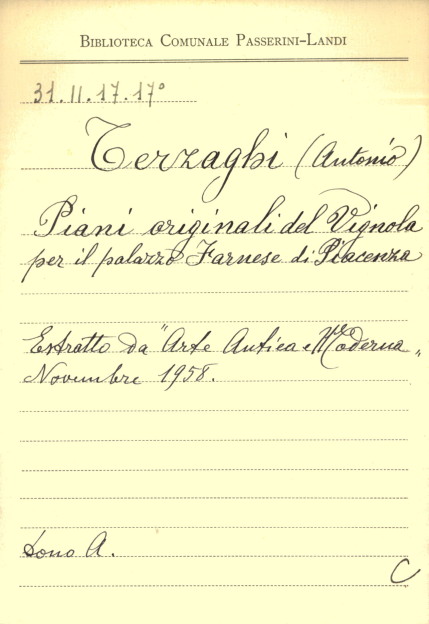 BIBLIOTECA COMUNALE PASSERINI-LANDI
31.II.17.17°
Terzaghi (Antonio)
Piani originali del Vignola
per il palazzo Farnese di Piacenza
Estratto da "Arte Antica e Moderna"
Novembre 1958.
Dono A.
C